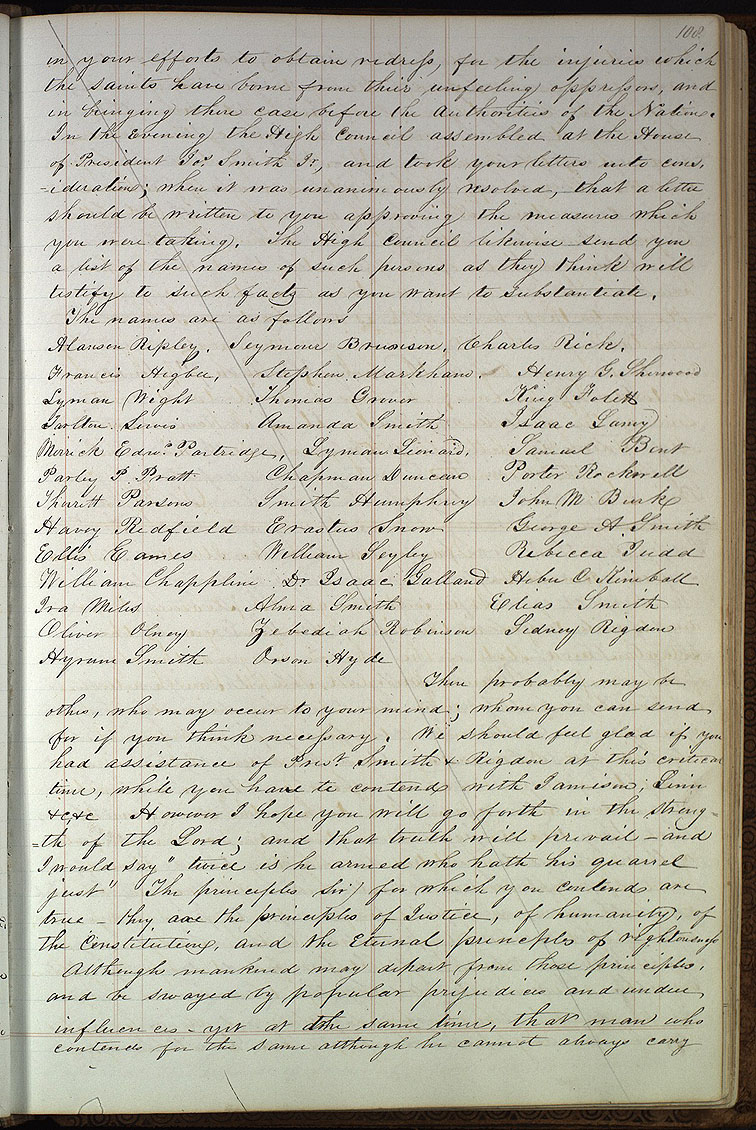 108
in your efforts to obtain redress, for the injuries which
the saints have borne from their unfeeling oppressors, and
in bringing there case before the Authorities of the Nation.
In the Evening the High Council assembled at the House
of President Jos. Smith Jr, and took your letters into cons,
=ideration; when it was unanimously resolved, that a letter
should be written to you approving the measures which
you were taking. The High Council likewise send you
a list of the names of such persons as they think will
testify to such facts as you want to substantiate.
The names are as follows
Alanson Ripley. Seymour Brunson. Charles Rich.
Francis Higbee, Stephen Markham. Henry G. Sherwood
Lyman Wight Thomas Grover King Folett
Tarlton Lewis Amanda Smith Isaac Lamy
Merrick Edwd Partridge, Lyman Leonard, Samuel Bent
Parley P. Pratt Chapman Duncan Porter Rockwell
Tharett Parsons Smith Humphrey John M. Burk
Havry Redfield Erastus Snow George A Smith
Ellis Eames William Seyley Rebecca Judd
William Chappline Dr Isaac Galland Heber C. Kimball
Ira Miles Alma Smith Elias Smith
Oliver Olney Zebediah Robinson Sidney Rigdon
Hyrum Smith Orson Hyde
There probably may be
others, who may occur to your mind; whom you can send
for if you think necessary. We should feel glad if you
had assistance of Prest Smith & Rigdon at this critical
time, while you have to contend with Jamison; Linn
&c,&c However I hope you will go forth in the streng-
=th of the Lord; and that truth will prevail - and
I would say "twice is he armed who hath his quarrel
just" The principles sir! for which you contend are
true - they are the principles of Justice, of humanity, of
the Constitution, and the Eternal principles of rightousness
Although mankind may depart from those principles,
and be swayed by popular prejudices and undue
influences - yet at the same time, that man who
contends for the same although he cannot always carry